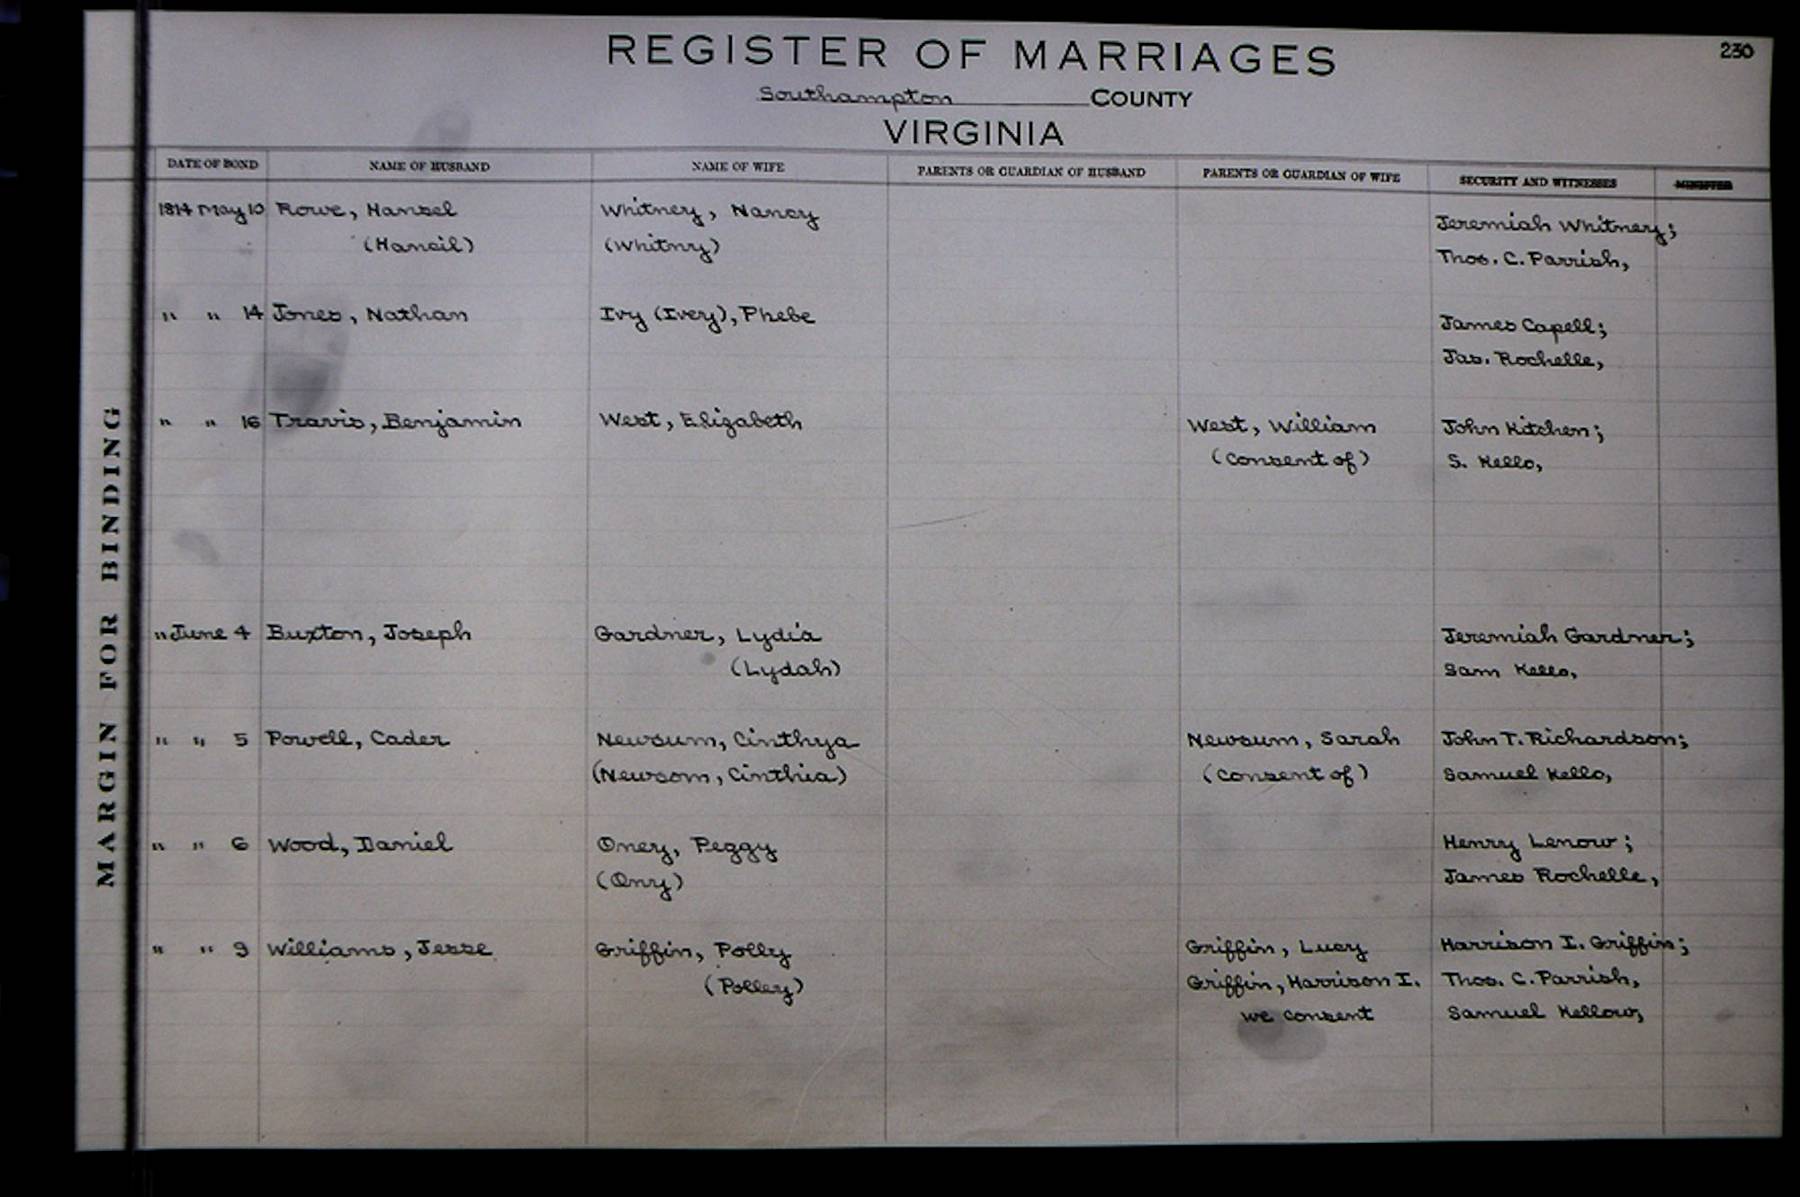 230
REGISTER OF MARRIAGES
Southampton COUNTY
VIRGINIA
DATE OF BOND NAME OF HUSBAND NAME OF WIFE PARENTS OR GUARDIAN OF HUSBAND PARENTS OR GUARDIAN OF WIFE SECURITY AND WITNESSES MINISTER
1814 May 10 Rowe, Hansel Whitney, Nancy Jeremiah Whitney;
(Hancil) (Whitny) Thos. C. Parrish,
" " 14 Jones, Nathan Ivy (Ivey), Phebe James Capell;
Jas. Rochelle,
" " 16 Travis, Benjamin West, Elizabeth West, William John Kitchen;
(Consent of) S. Kello,
" June 4 Buxton, Joseph Gardner, Lydia Jeremiah Gardner;
(Lydah) Sam Kello,
" " 5 Powell, Cader Newsum, Cinthya Newsum, Sarah John T. Richardson;
(Newsom, Cinthia) (Consent of) Samuel Kello,
" " 6 Wood, Daniel Oney, Peggy Henry Lenow;
(Ony) James Rochelle,
" " 9 Williams, Jesse Griffin, Polly Griffin, Lucy Harrison I. Griffin;
(Polley) Griffin, Harrison I. Thos. C. Parrish,
we consent Samuel Kellow,
MARGIN FOR BINDING